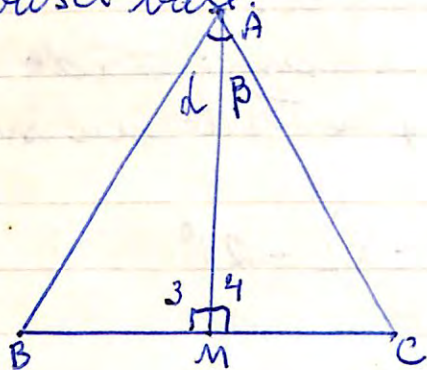 A
α β
3 4
B M C